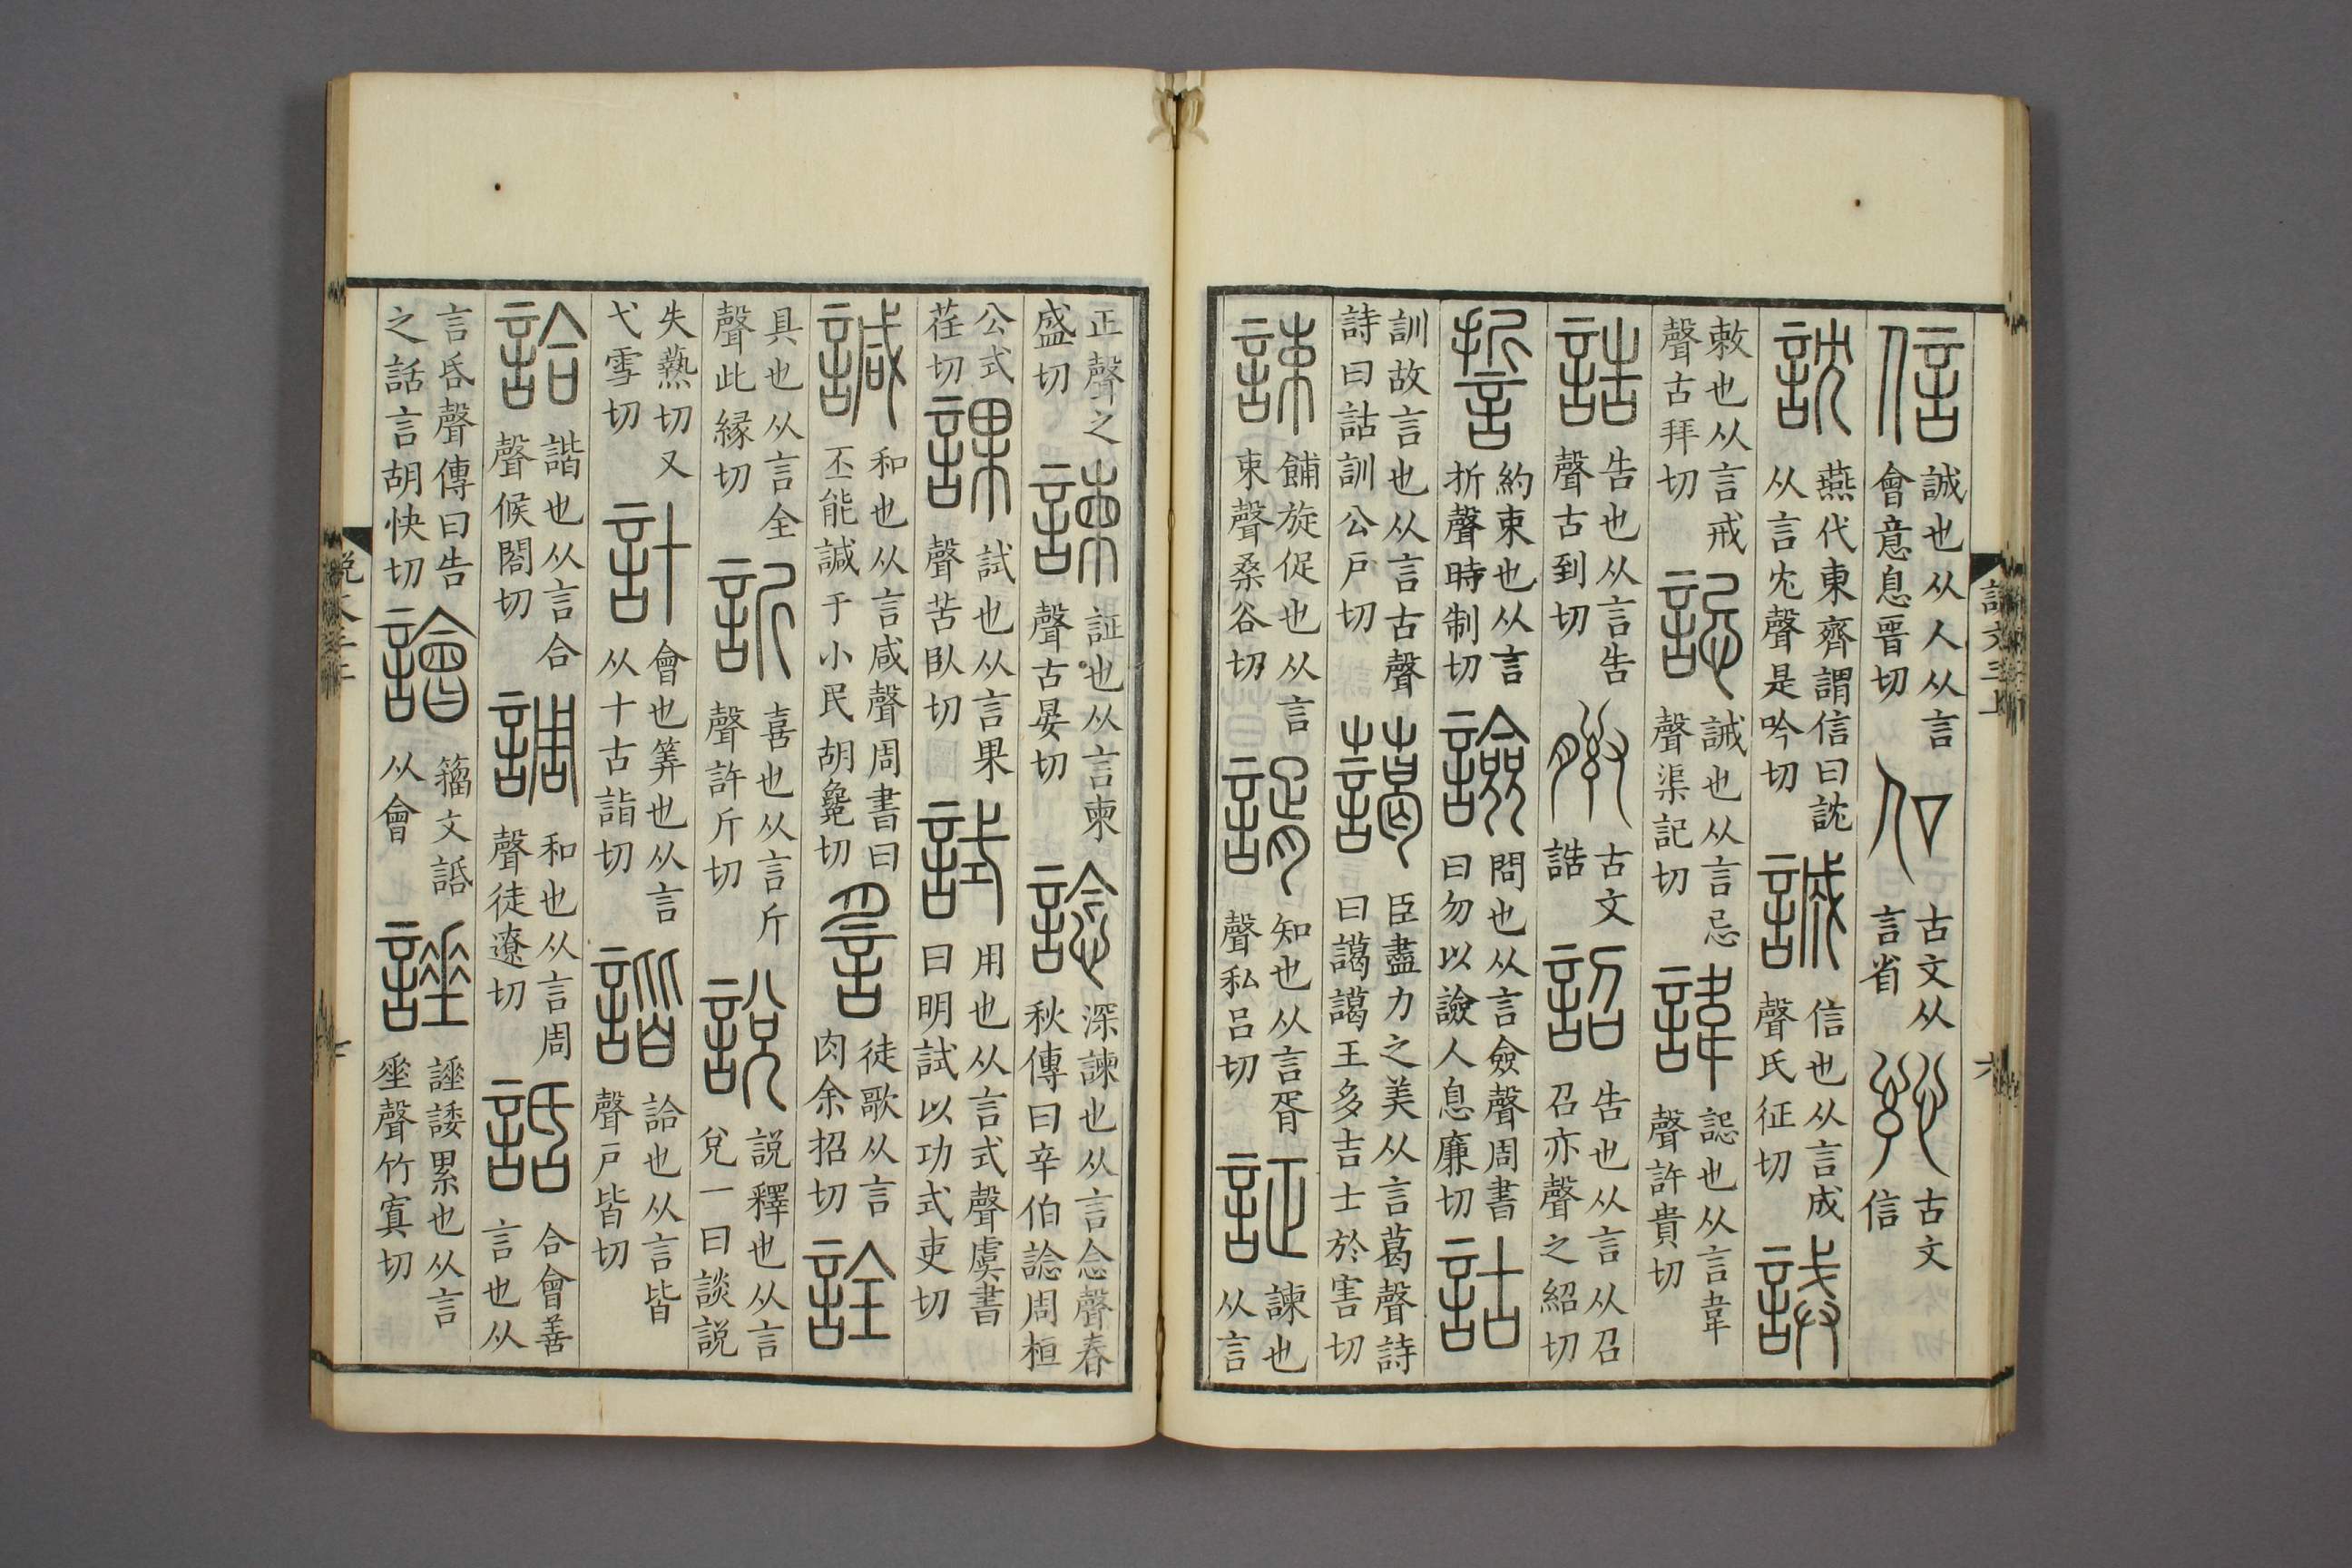 信誠也从人从言會意息晉切㐰古文从言省𧥧古文信
訦燕代東齊謂信曰訦从言冘聲是吟切誠信也从言成聲氏征切誡
敕也从言戒聲古拜切誋誡也从言忌聲渠記切諱誋也从言韋聲許貴切
誥告也从言告聲古到切𠧅古文誥詔告也从言从召召亦聲之紹切
誓約束也从言折聲時制切譣問也从言僉聲周書曰勿以譣人息廉切詁
訓故言也从言古聲詩曰詁訓公戶切藹臣盡力之美从言葛聲詩曰藹藹王多吉士於害切
諫餔旋促也从言束聲桑谷切諝知也从言胥聲私呂切証諫也从言
說文三上
六
正聲之盛切諫証也从言柬聲古晏切諗深諫也从言念聲春秋傳曰辛伯諗周桓
公式荏切課試也从言果聲苦臥切試用也从言式聲虞書曰明試以功式吏切
諴和也从言咸聲周書曰丕能諴于小民胡毚切䚻徒歌从言肉余招切詮
具也从言全聲此緣切訢喜也从言斤聲許斤切說說釋也从言兌一曰談說
失爇切又弋雪切計會也筭也从言从十古詣切諧詥也从言皆聲戶皆切
詥諧也从言合聲候閤切調和也从言周聲徒遼切話合會善言也从
言昏聲傳曰告之話言胡快切譮籀文話从會諈諈諉累也从言垂聲竹寘切